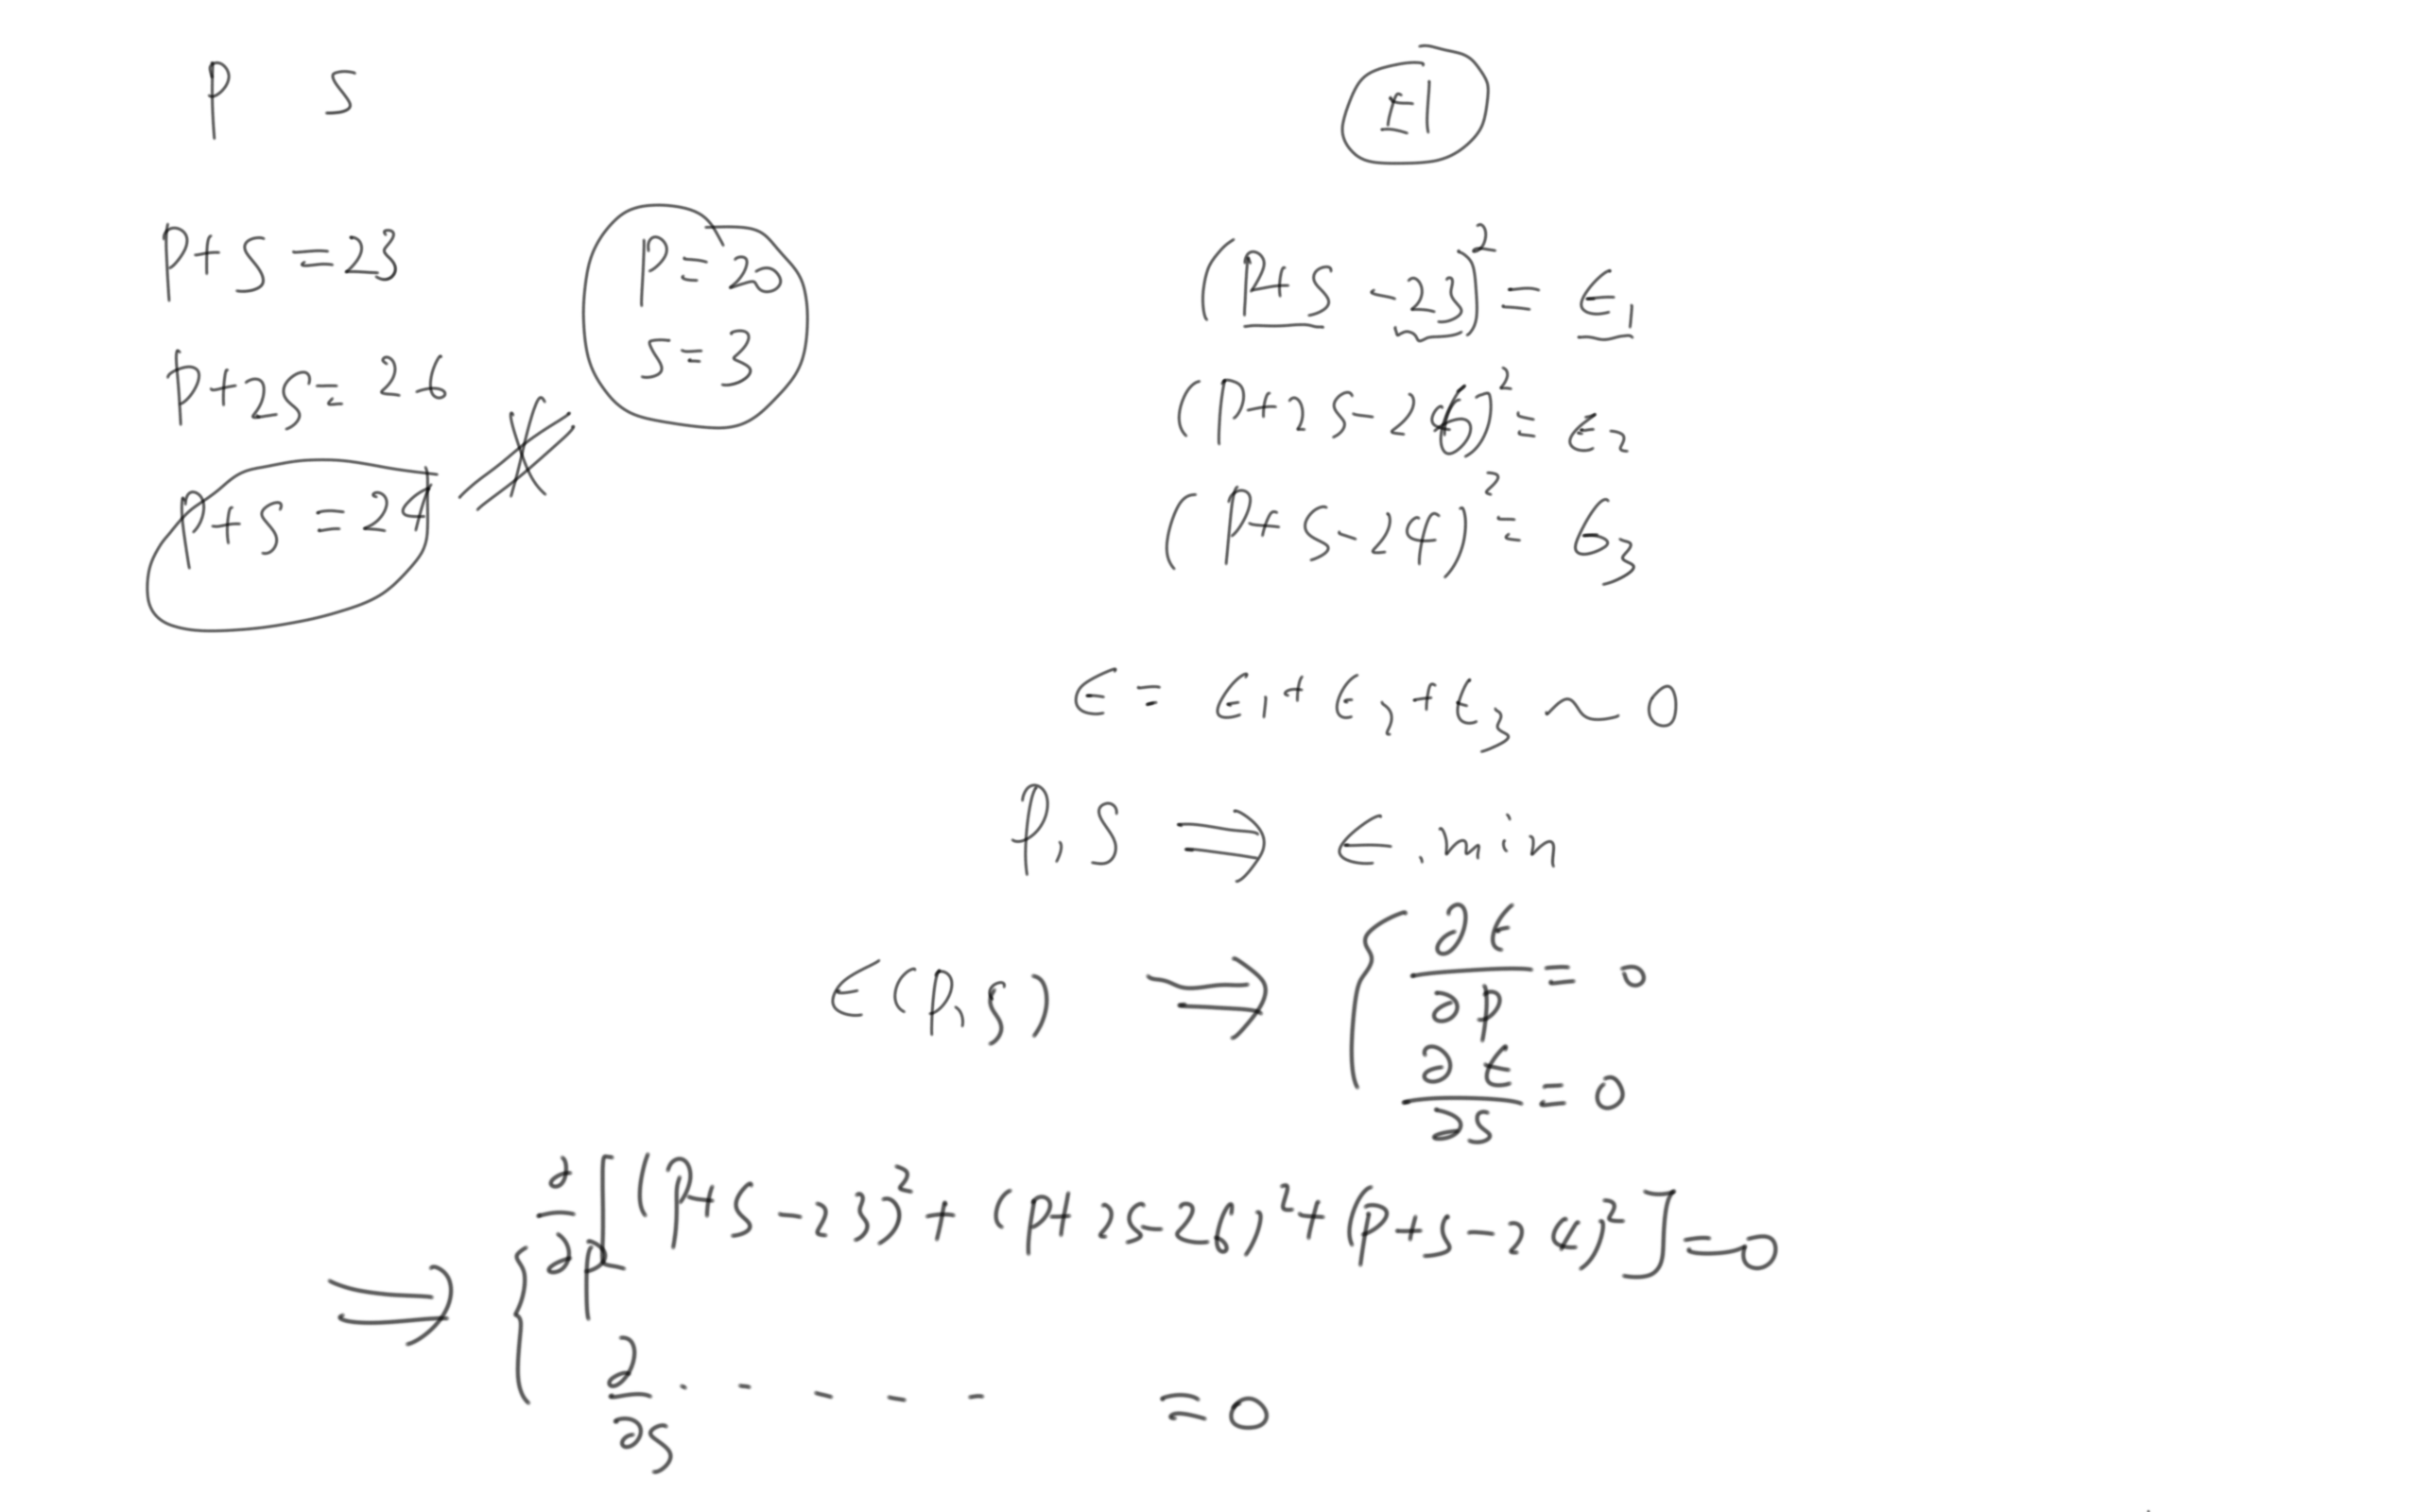 P S
P+S=23
P+2S=26
P+S=24
P=20
S=3
±1
(P+S-23)²=ϵ₁
(P+2S-26)²=ϵ₂
(P+S-24)²=ϵ₃
ϵ=ϵ₁+ϵ₂+ϵ₃~0
P,S⇒ϵ.min
ϵ(P,S)⇒{∂ϵ/∂P=0
∂ϵ/∂S=0
⇒{∂/∂P[(P+S-23)²+(P+2S-26)²+(P+S-24)²]=0
∂/∂S.-----=0